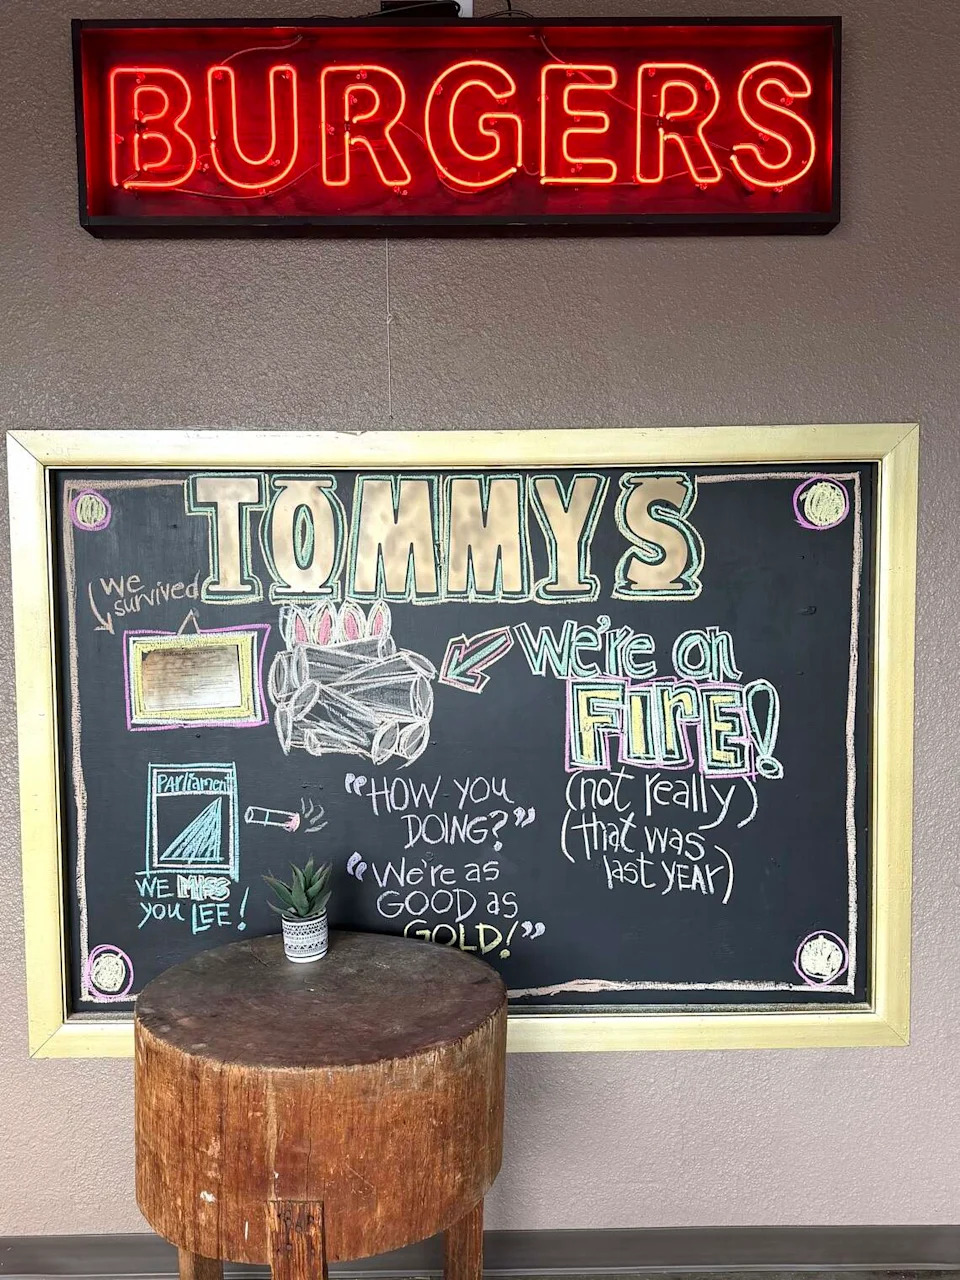 BURGERS
TOMMYS
We survived
We're on
FIRE!
(not really)
(that was
last YEAR)
Parliament
WE MISS
you LEE!
"HOW YOU
DOING?"
"We're as
GOOD as
GOLD!"